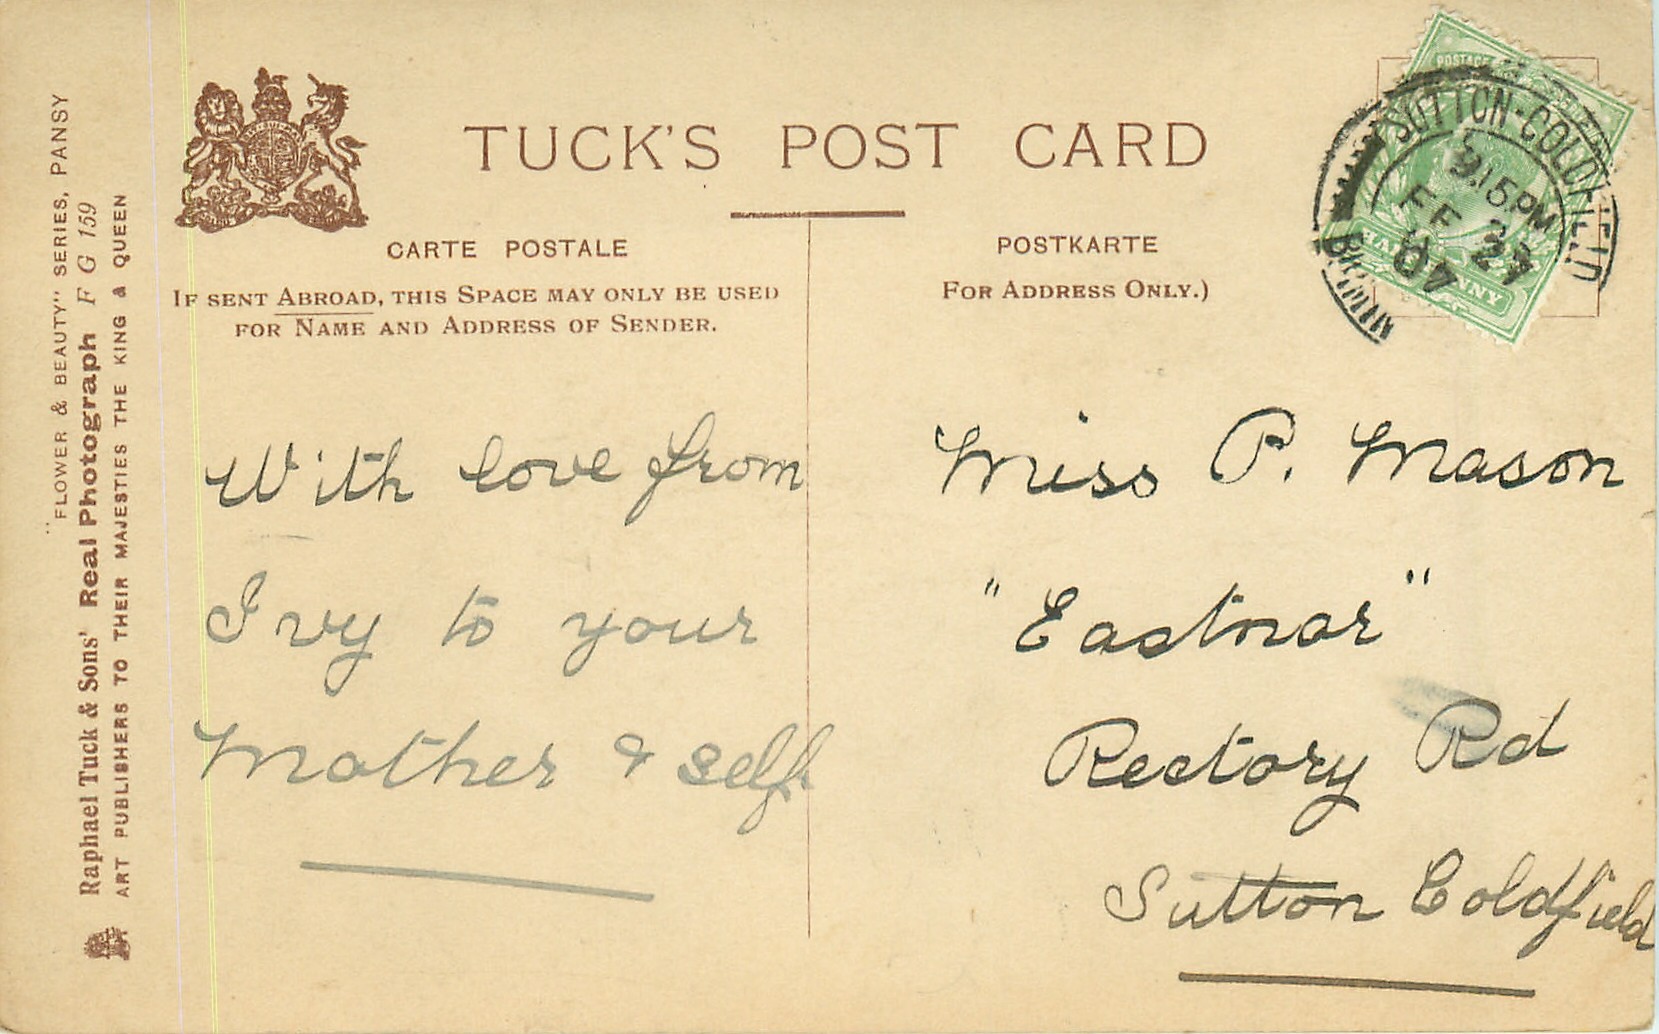 TUCK'S POST CARD
CARTE POSTALE
IF SENT ABROAD, THIS SPACE MAY ONLY BE USED
FOR NAME AND ADDRESS OF SENDER.
POSTKARTE
FOR ADDRESS ONLY.)
POSTAGE
SUTTON-COLDFIELD
9.15PM
FE 27
07
With love from
Ivy to your
Mother & self.
Miss P. Mason
"Eastnor"
Rectory Rd
Sutton Coldfield
"FLOWER & BEAUTY" SERIES, PANSY
Raphael Tuck & Sons' Real Photograph F G 159
ART PUBLISHERS TO THEIR MAJESTIES THE KING & QUEEN